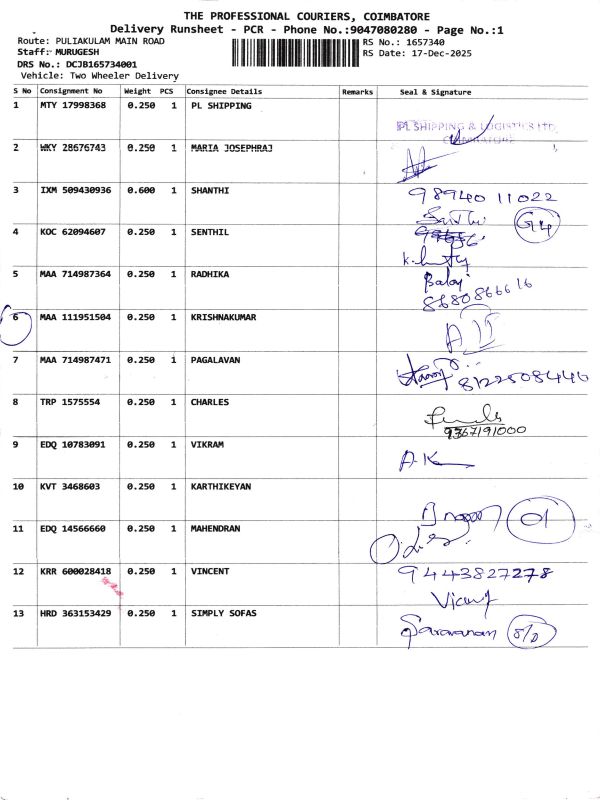 THE PROFESSIONAL COURIERS, COIMBATORE
Delivery Runsheet - PCR - Phone No.:9047080280 - Page No.:1
Route: PULIAKULAM MAIN ROAD
Staff: MURUGESH
DRS No.: DCJB165734001
Vehicle: Two Wheeler Delivery
RS No.: 1657340
RS Date: 17-Dec-2025
S No Consignment No Weight PCS Consignee Details Remarks Seal & Signature
1 MTY 17998368 0.250 1 PL SHIPPING
PL SHIPPING & LOGISTICS LTD,
COIMBATORE
2 WKY 28676743 0.250 1 MARIA JOSEPHRAJ
3 IXM 509430936 0.600 1 SHANTHI 9894011022
G4
4 KOC 62094607 0.250 1 SENTHIL
5 MAA 714987364 0.250 1 RADHIKA Balaji
8680866616
6 MAA 111951504 0.250 1 KRISHNAKUMAR
7 MAA 714987471 0.250 1 PAGALAVAN 8122508446
8 TRP 1575554 0.250 1 CHARLES
9367191000
9 EDQ 10783091 0.250 1 VIKRAM A.K
10 KVT 3468603 0.250 1 KARTHIKEYAN
01
11 EDQ 14566660 0.250 1 MAHENDRAN
12 KRR 600028418 0.250 1 VINCENT 9443827278
13 HRD 363153429 0.250 1 SIMPLY SOFAS Saravanan S/O